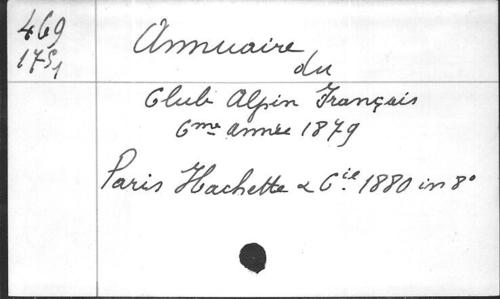 469
1751
Annuaire
du
Club Alpin Français
6me année 1879
Paris Hachette & Cie. 1880 in 8°